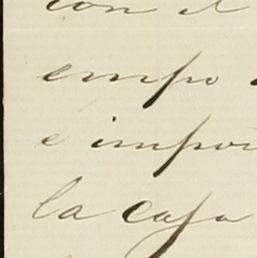 con el
empo
e impor
la casa